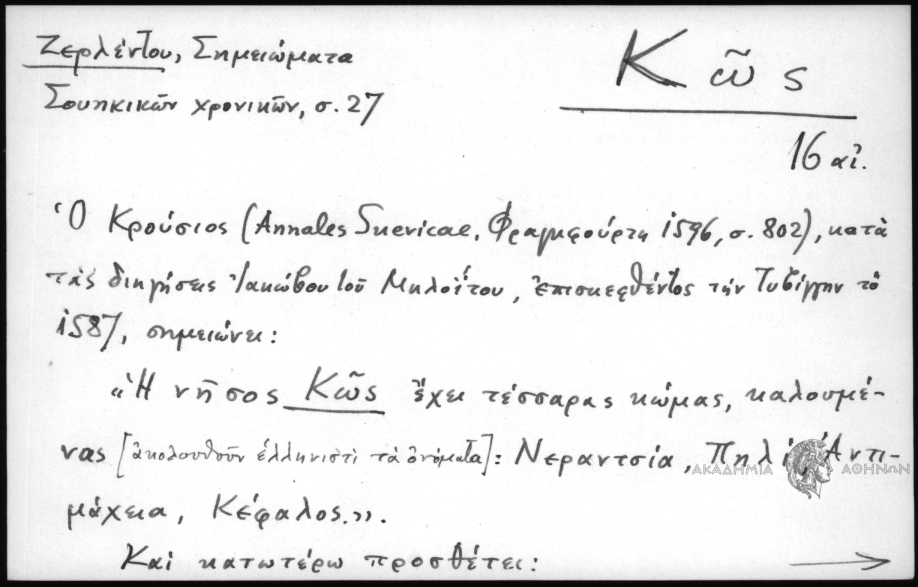 Ζερλέντου, Σημειώματα
Σουηκικῶν χρονικῶν, σ. 27
Κῶς
16 αἰ.
Ὁ Κρούσιος (Annales Suevicae, Φραγκφούρτη 1596, σ. 802), κατὰ
τὰς διηγήσεις Ἰακώβου τοῦ Μηλοΐτου, ἐπισκεφθέντος τὴν Τυβίγγην τὸ
1587, σημειώνει:
«Ἡ νῆσος Κῶς ἔχει τέσσαρας κώμας, καλουμέ-
νας [ἀκολουθοῦν ἑλληνιστὶ τὰ ὀνόματα]: Νεραντσία, Πηλί, Ἀντι-
μάχεια, Κέφαλος».
Καὶ κατωτέρω προσθέτει:
ΑΚΑΔΗΜΙΑ ΑΘΗΝΩΝ